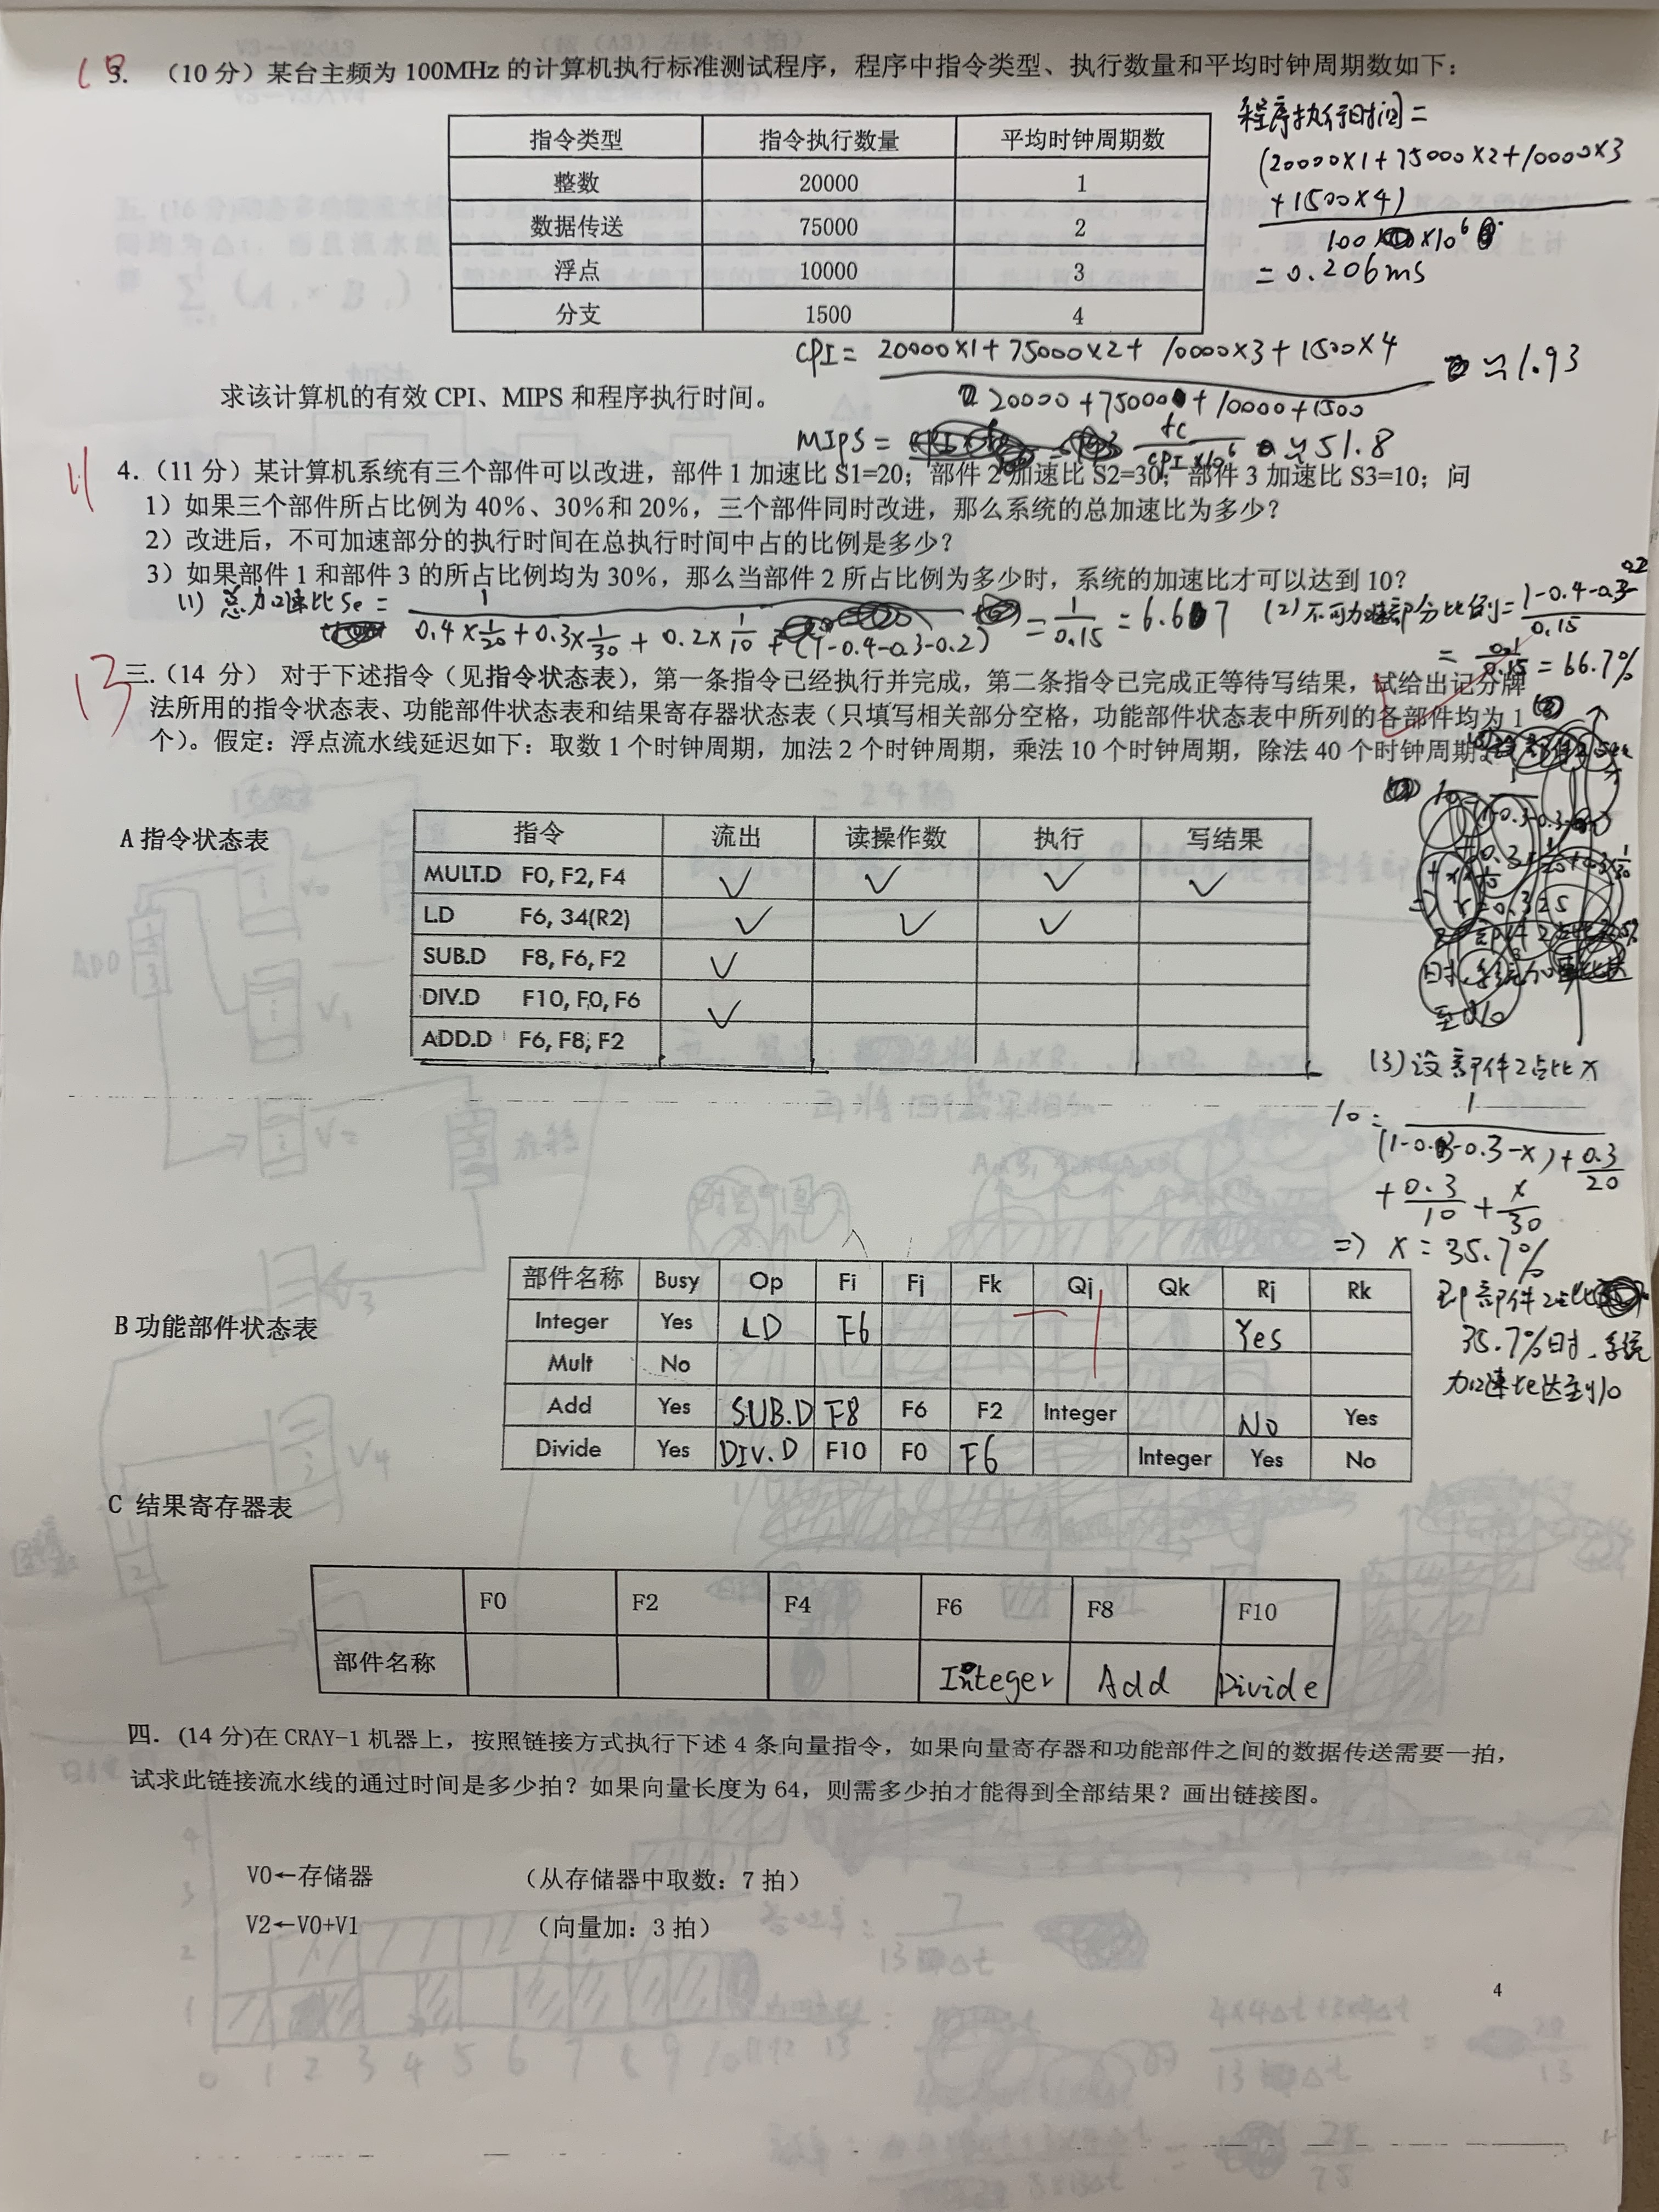 10
3. （10 分）某台主频为 100MHz 的计算机执行标准测试程序，程序中指令类型、执行数量和平均时钟周期数如下：
指令类型 指令执行数量 平均时钟周期数
整数 20000 1
数据传送 75000 2
浮点 10000 3
分支 1500 4
程序执行时间=
(20000×1+75000×2+10000×3
+1500×4)
100 ×10⁶
=0.206ms
CPI= 20000×1+75000×2+ 10000×3+1500×4
20000+75000+10000+1500
≈1.93
求该计算机的有效 CPI、MIPS 和程序执行时间。
MIPS= fc
CPI×10⁶ ≈51.8
11
4.（11 分）某计算机系统有三个部件可以改进，部件 1 加速比 S1=20；部件 2 加速比 S2=30；部件 3 加速比 S3=10；问
1）如果三个部件所占比例为 40%、30%和 20%，三个部件同时改进，那么系统的总加速比为多少？
2）改进后，不可加速部分的执行时间在总执行时间中占的比例是多少？
3）如果部件 1 和部件 3 的所占比例均为 30%，那么当部件 2 所占比例为多少时，系统的加速比才可以达到 10？
(1) 总加速比Se= 1
0.4×1/20+0.3×1/30+0.2×1/10+(1-0.4-0.3-0.2)
=1/0.15=6.67
(2)不可加速部分比例=1-0.4-0.3-0.2
0.15
=0.1/0.15=66.7%
13
三.（14 分） 对于下述指令（见指令状态表），第一条指令已经执行并完成，第二条指令已完成正等待写结果，试给出记分牌
法所用的指令状态表、功能部件状态表和结果寄存器状态表（只填写相关部分空格，功能部件状态表中所列的各部件均为 1
个）。假定：浮点流水线延迟如下：取数 1 个时钟周期，加法 2 个时钟周期，乘法 10 个时钟周期，除法 40 个时钟周期。
A 指令状态表
指令 流出 读操作数 执行 写结果
MULT.D F0, F2, F4 ✓ ✓ ✓ ✓
L.D F6, 34(R2) ✓ ✓ ✓
SUB.D F8, F6, F2 ✓
DIV.D F10, F0, F6 ✓
ADD.D F6, F8, F2
(3)设部件2占比x
10= 1
(1-0.3-0.3-x)+0.3/20
+0.3/10+x/30
=> x=35.7%
即部件2占比
35.7%时，系统
加速比达到10
B 功能部件状态表
部件名称 Busy Op Fi Fj Fk Qj Qk Rj Rk
Integer Yes LD F6 Yes
Mult No
Add Yes SUB.D F8 F6 F2 Integer No Yes
Divide Yes DIV.D F10 F0 F6 Integer Yes No
C 结果寄存器表
F0 F2 F4 F6 F8 F10
部件名称 Integer Add Divide
四. (14 分)在 CRAY-1 机器上，按照链接方式执行下述 4 条向量指令，如果向量寄存器和功能部件之间的数据传送需要一拍，
试求此链接流水线的通过时间是多少拍？如果向量长度为 64，则需多少拍才能得到全部结果？画出链接图。
V0←存储器 （从存储器中取数：7 拍）
V2←V0+V1 （向量加：3 拍）
4